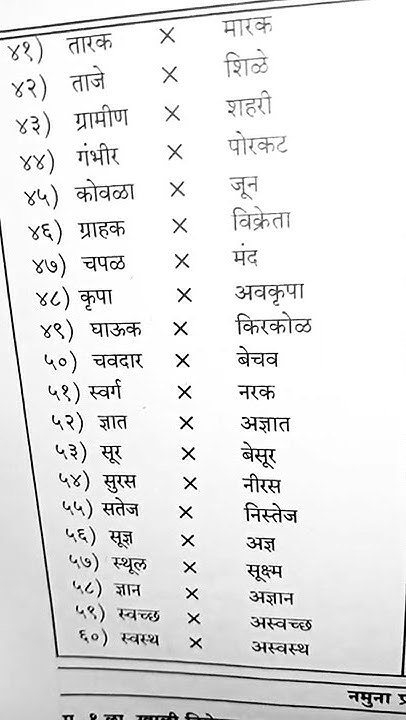 ४१) तारक × मारक
४२) ताजे × शिळे
४३) ग्रामीण × शहरी
४४) गंभीर × पोरकट
४५) कोवळा × जून
४६) ग्राहक × विक्रेता
४७) चपळ × मंद
४८) कृपा × अवकृपा
४९) घाऊक × किरकोळ
५०) चवदार × बेचव
५१) स्वर्ग × नरक
५२) ज्ञात × अज्ञात
५३) सूर × बेसूर
५४) सुरस × नीरस
५५) सतेज × निस्तेज
५६) सूज्ञ × अज्ञ
५७) स्थूल × सूक्ष्म
५८) ज्ञान × अज्ञान
५९) स्वच्छ × अस्वच्छ
६०) स्वस्थ × अस्वस्थ
नमुना